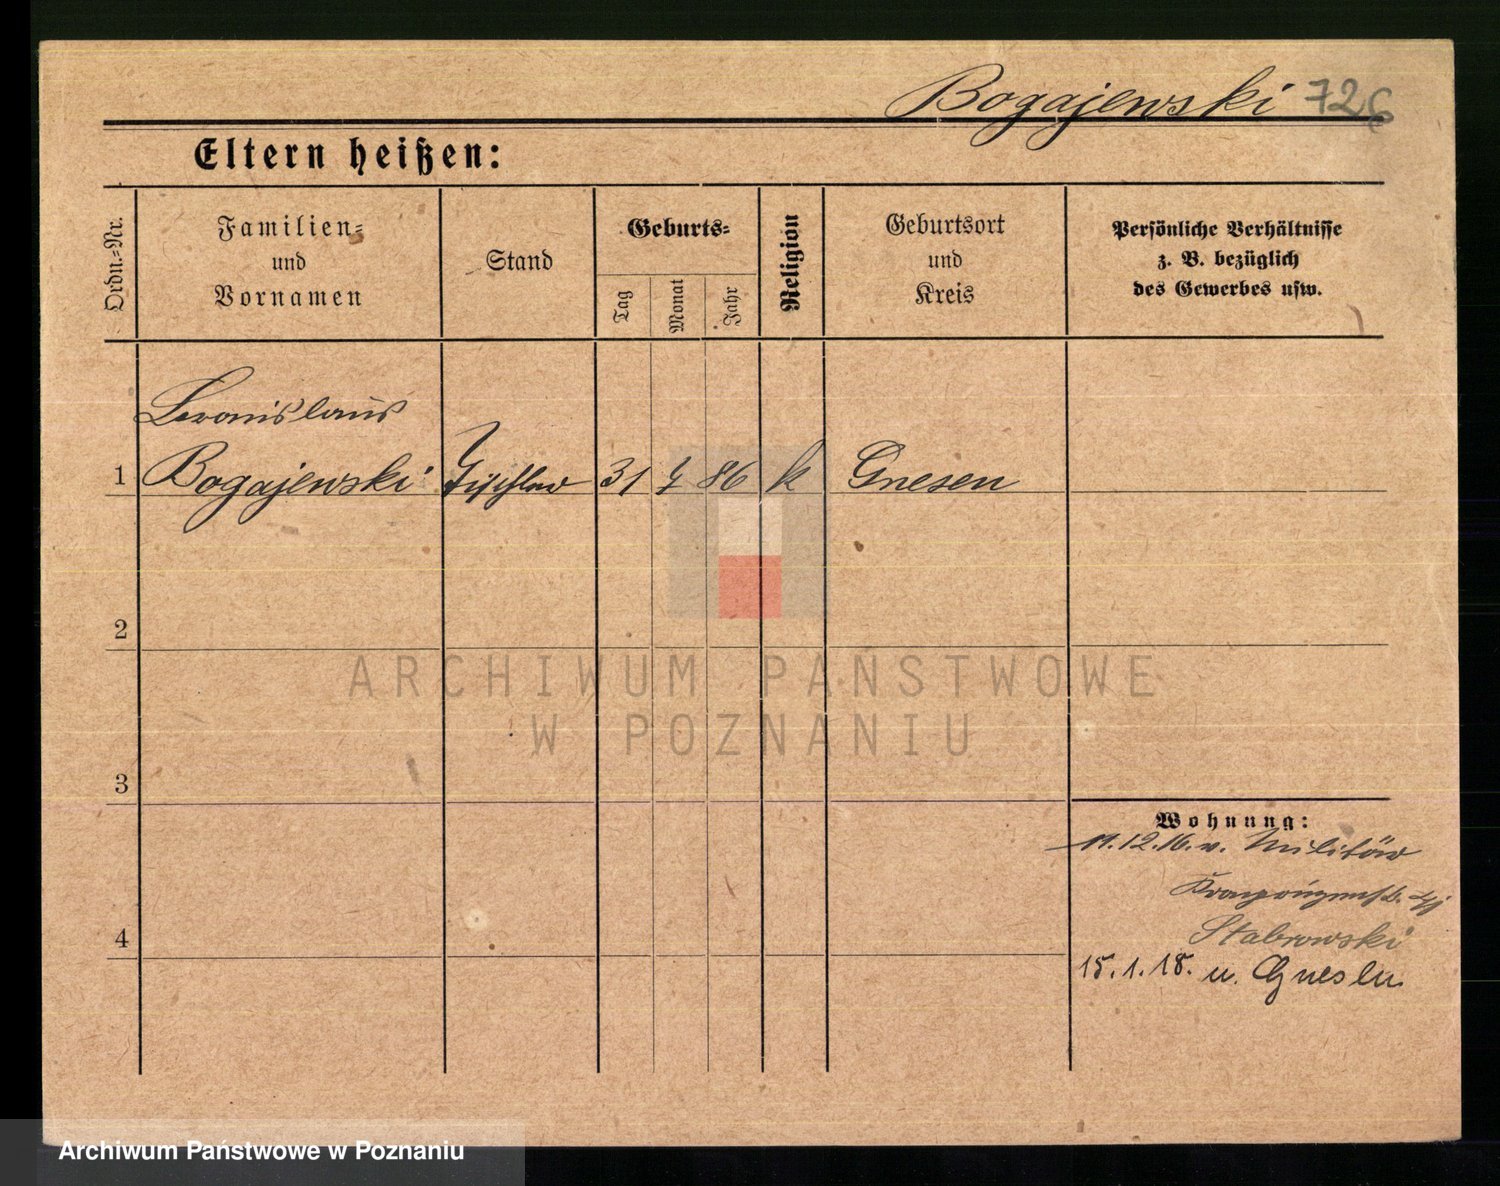 Bogajewski 726
Eltern heißen:
Ordn.-Nr.
Familien-
und
Vornamen
Stand
Geburts-
Tag
Monat
Jahr
Religion
Geburtsort
und
Kreis
Persönliche Verhältnisse
z. B. bezüglich
des Gewerbes usw.
Bronislaus
1 Bogajewski Tischler 31 7 86 k Gnesen
2
3
4
Wohnung:
11.12.16. v. Militär
Stabrowski
15.1.18. n. Gnesen
ARCHIWUM PAŃSTWOWE
W POZNANIU
Archiwum Państwowe w Poznaniu